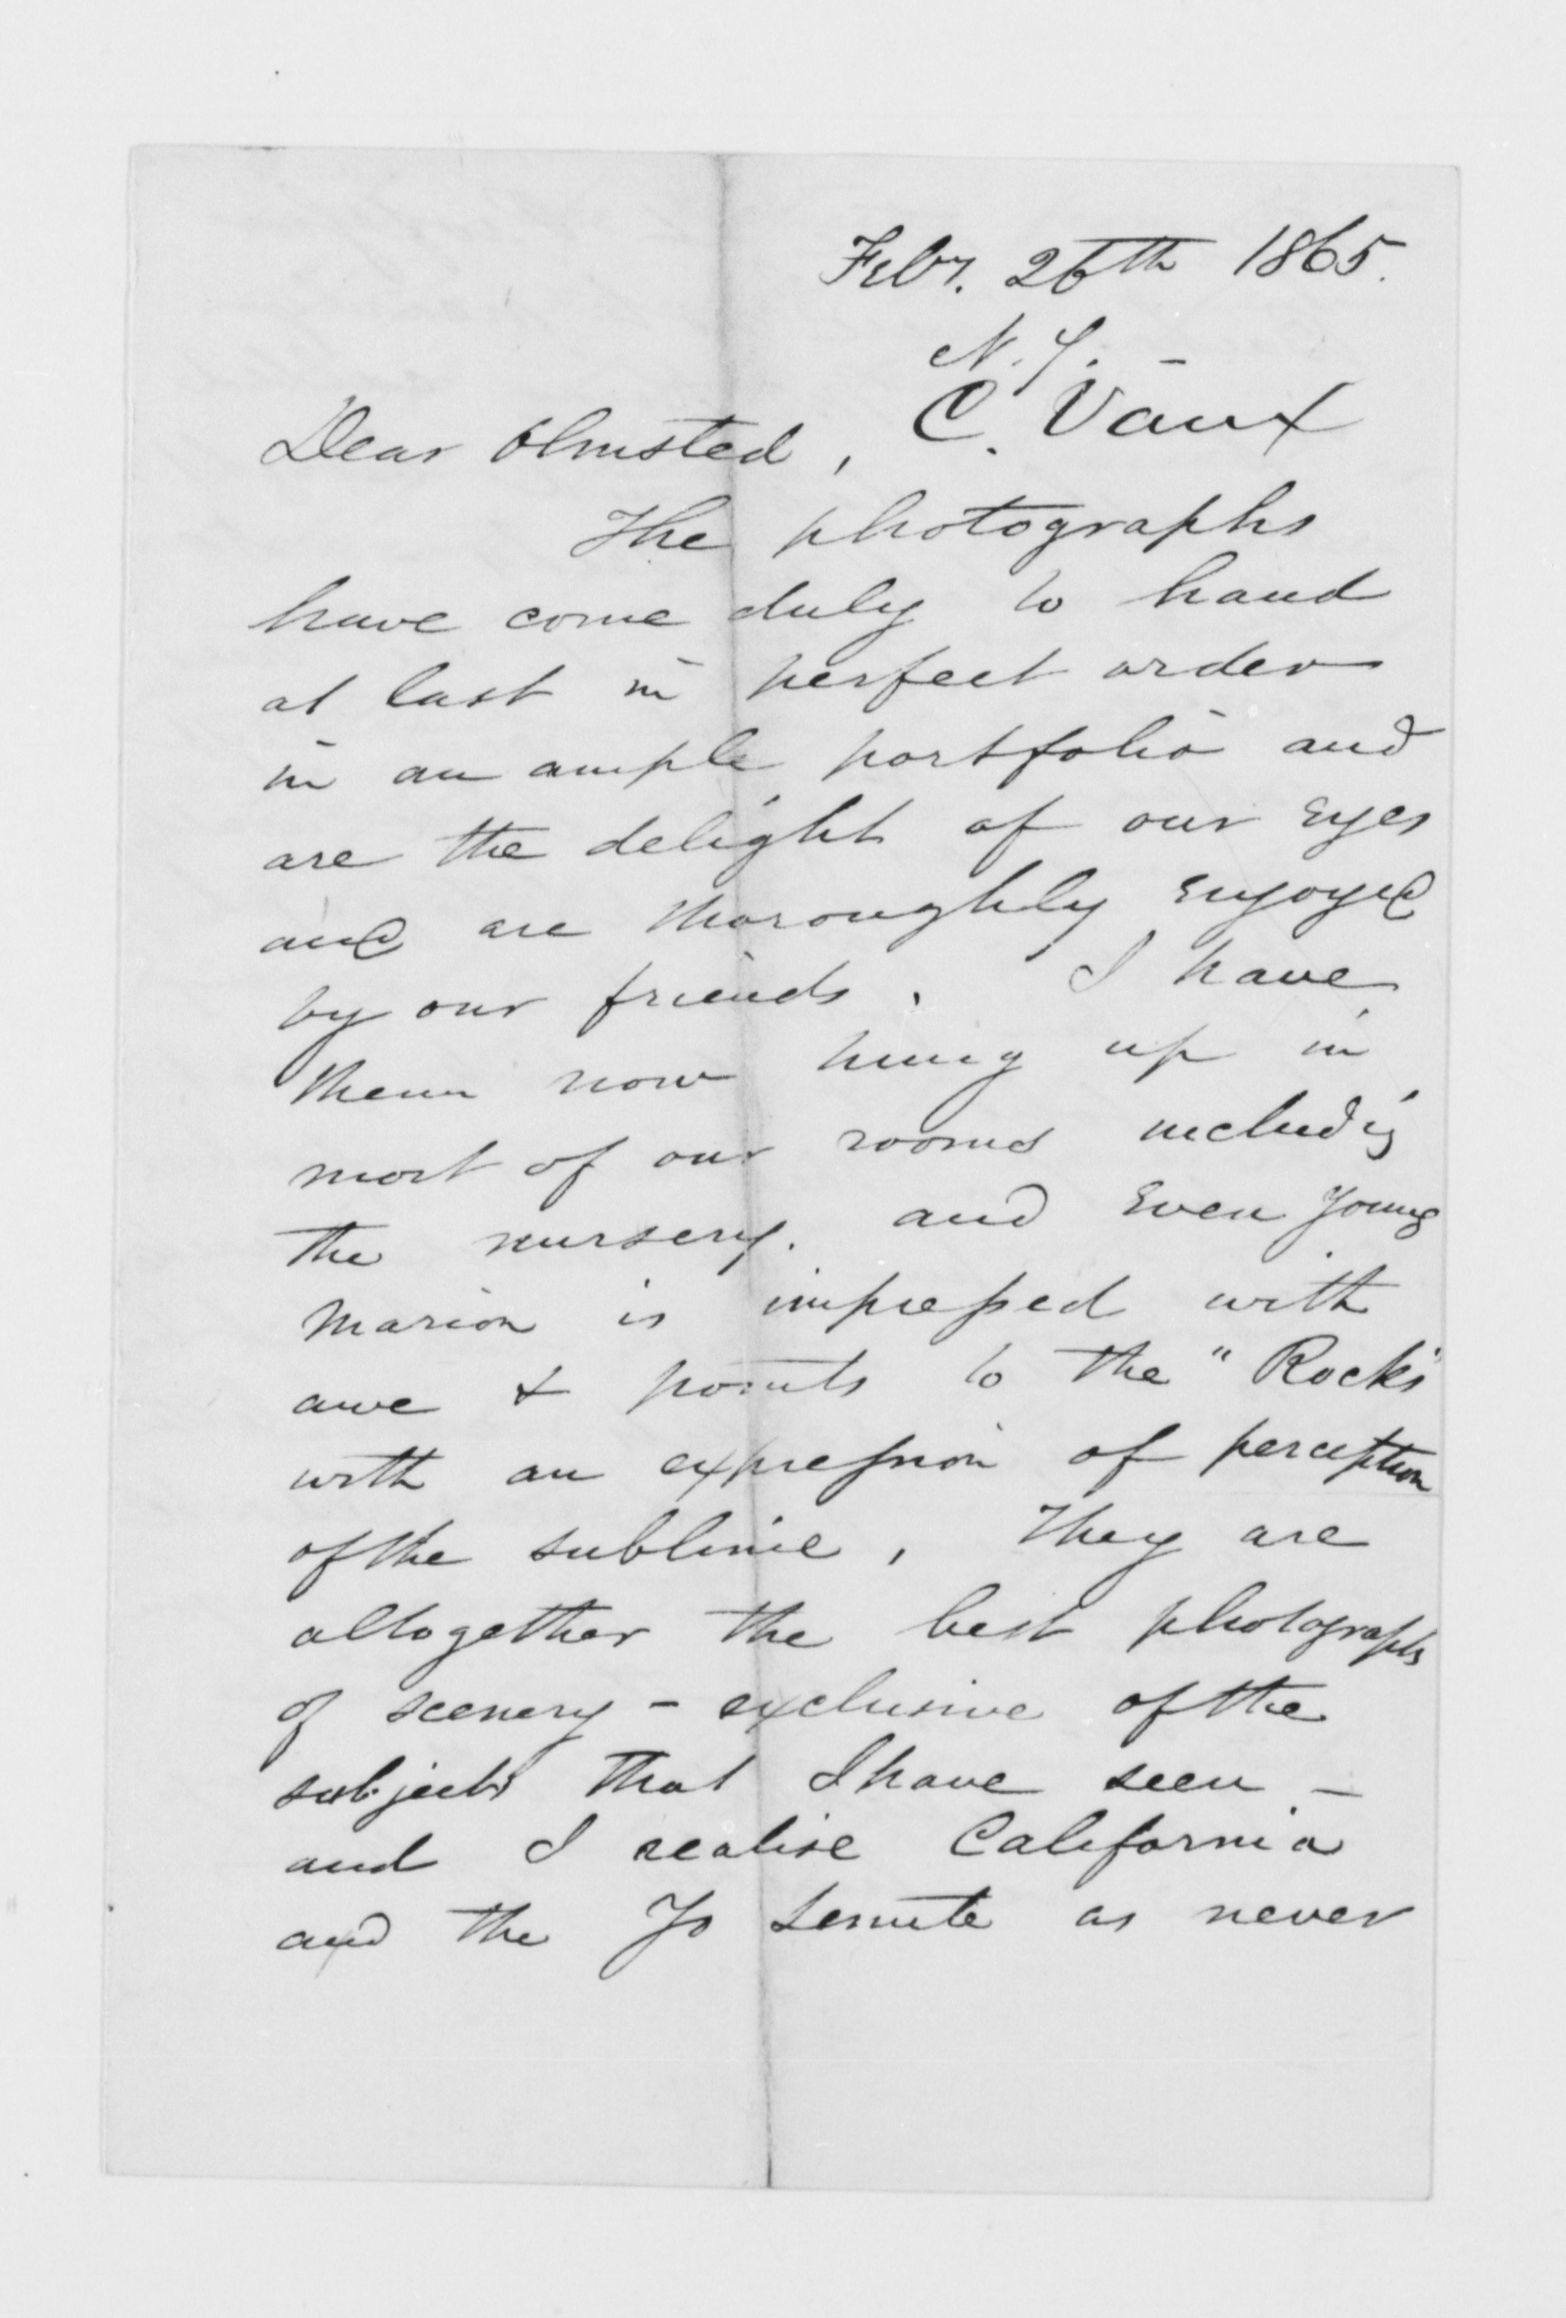 Febr. 26th 1865.
N.Y. –
C. Vaux
Dear Olmsted,
The photographs
have come duly to hand
at last in perfect order
in an ample portfolio and
are the delight of our eyes
and are thoroughly enjoyed
by our friends. I have
them now hung up in
most of our rooms including
the nursery. and even young
Marion is impressed with
awe & points to the "Rocks"
with an expression of perception
of the sublime, They are
altogether the best photographs
of scenery – exclusive of the
subjects that I have seen –
and I realise California
and the Yo Semite as never